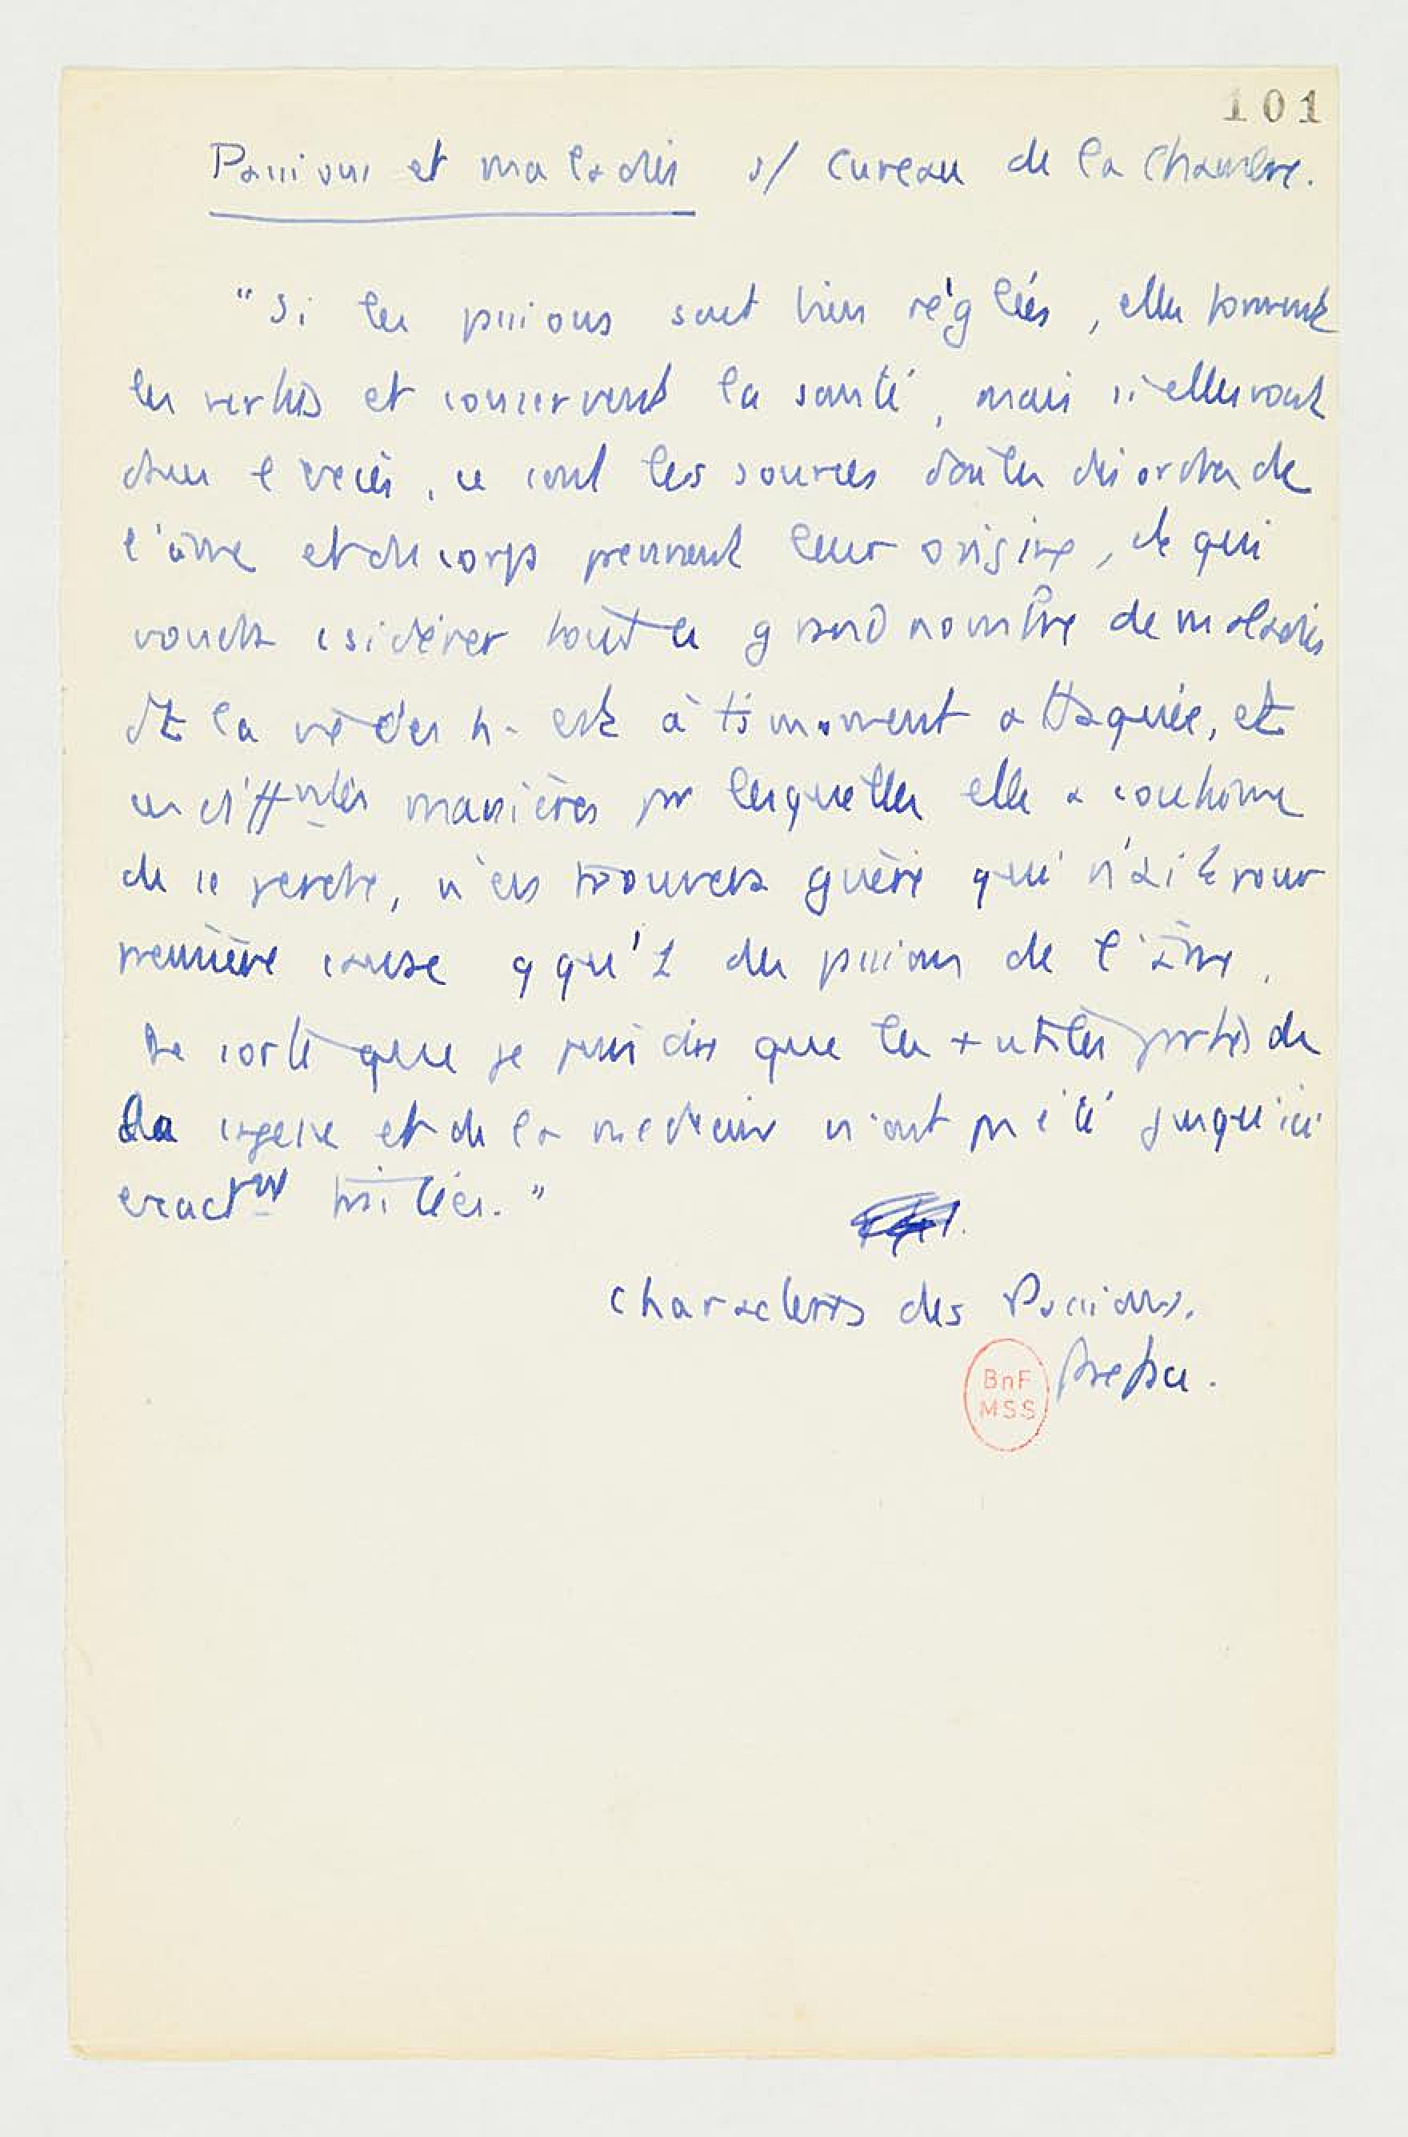 101
Passions et maladies s/ Cureau de la Chambre.
"Si les passions sont bien réglées, elles forment
les vertus et conservent la santé, mais si elles vont
dans l'excès, ce sont les sources d'où les désordres de
l'âme et du corps prennent leur origine, et qui
voudra csidérer tout le grand nombre de maladies
dt la vie des h. est à ts moment attaquée, et
les diffntes manières pr lesquelles elle a coutume
de se perdre, n'en trouvera guère qui n'ait pour
première cause qqu'1 des passions de l'âme.
De sorte que je puis dire que les + utiles parties de
la sagesse et de la médecine n'ont pas été jusqu'ici
exactmt traitées."
Characteres des Passions.
Préface.
BnF
MSS